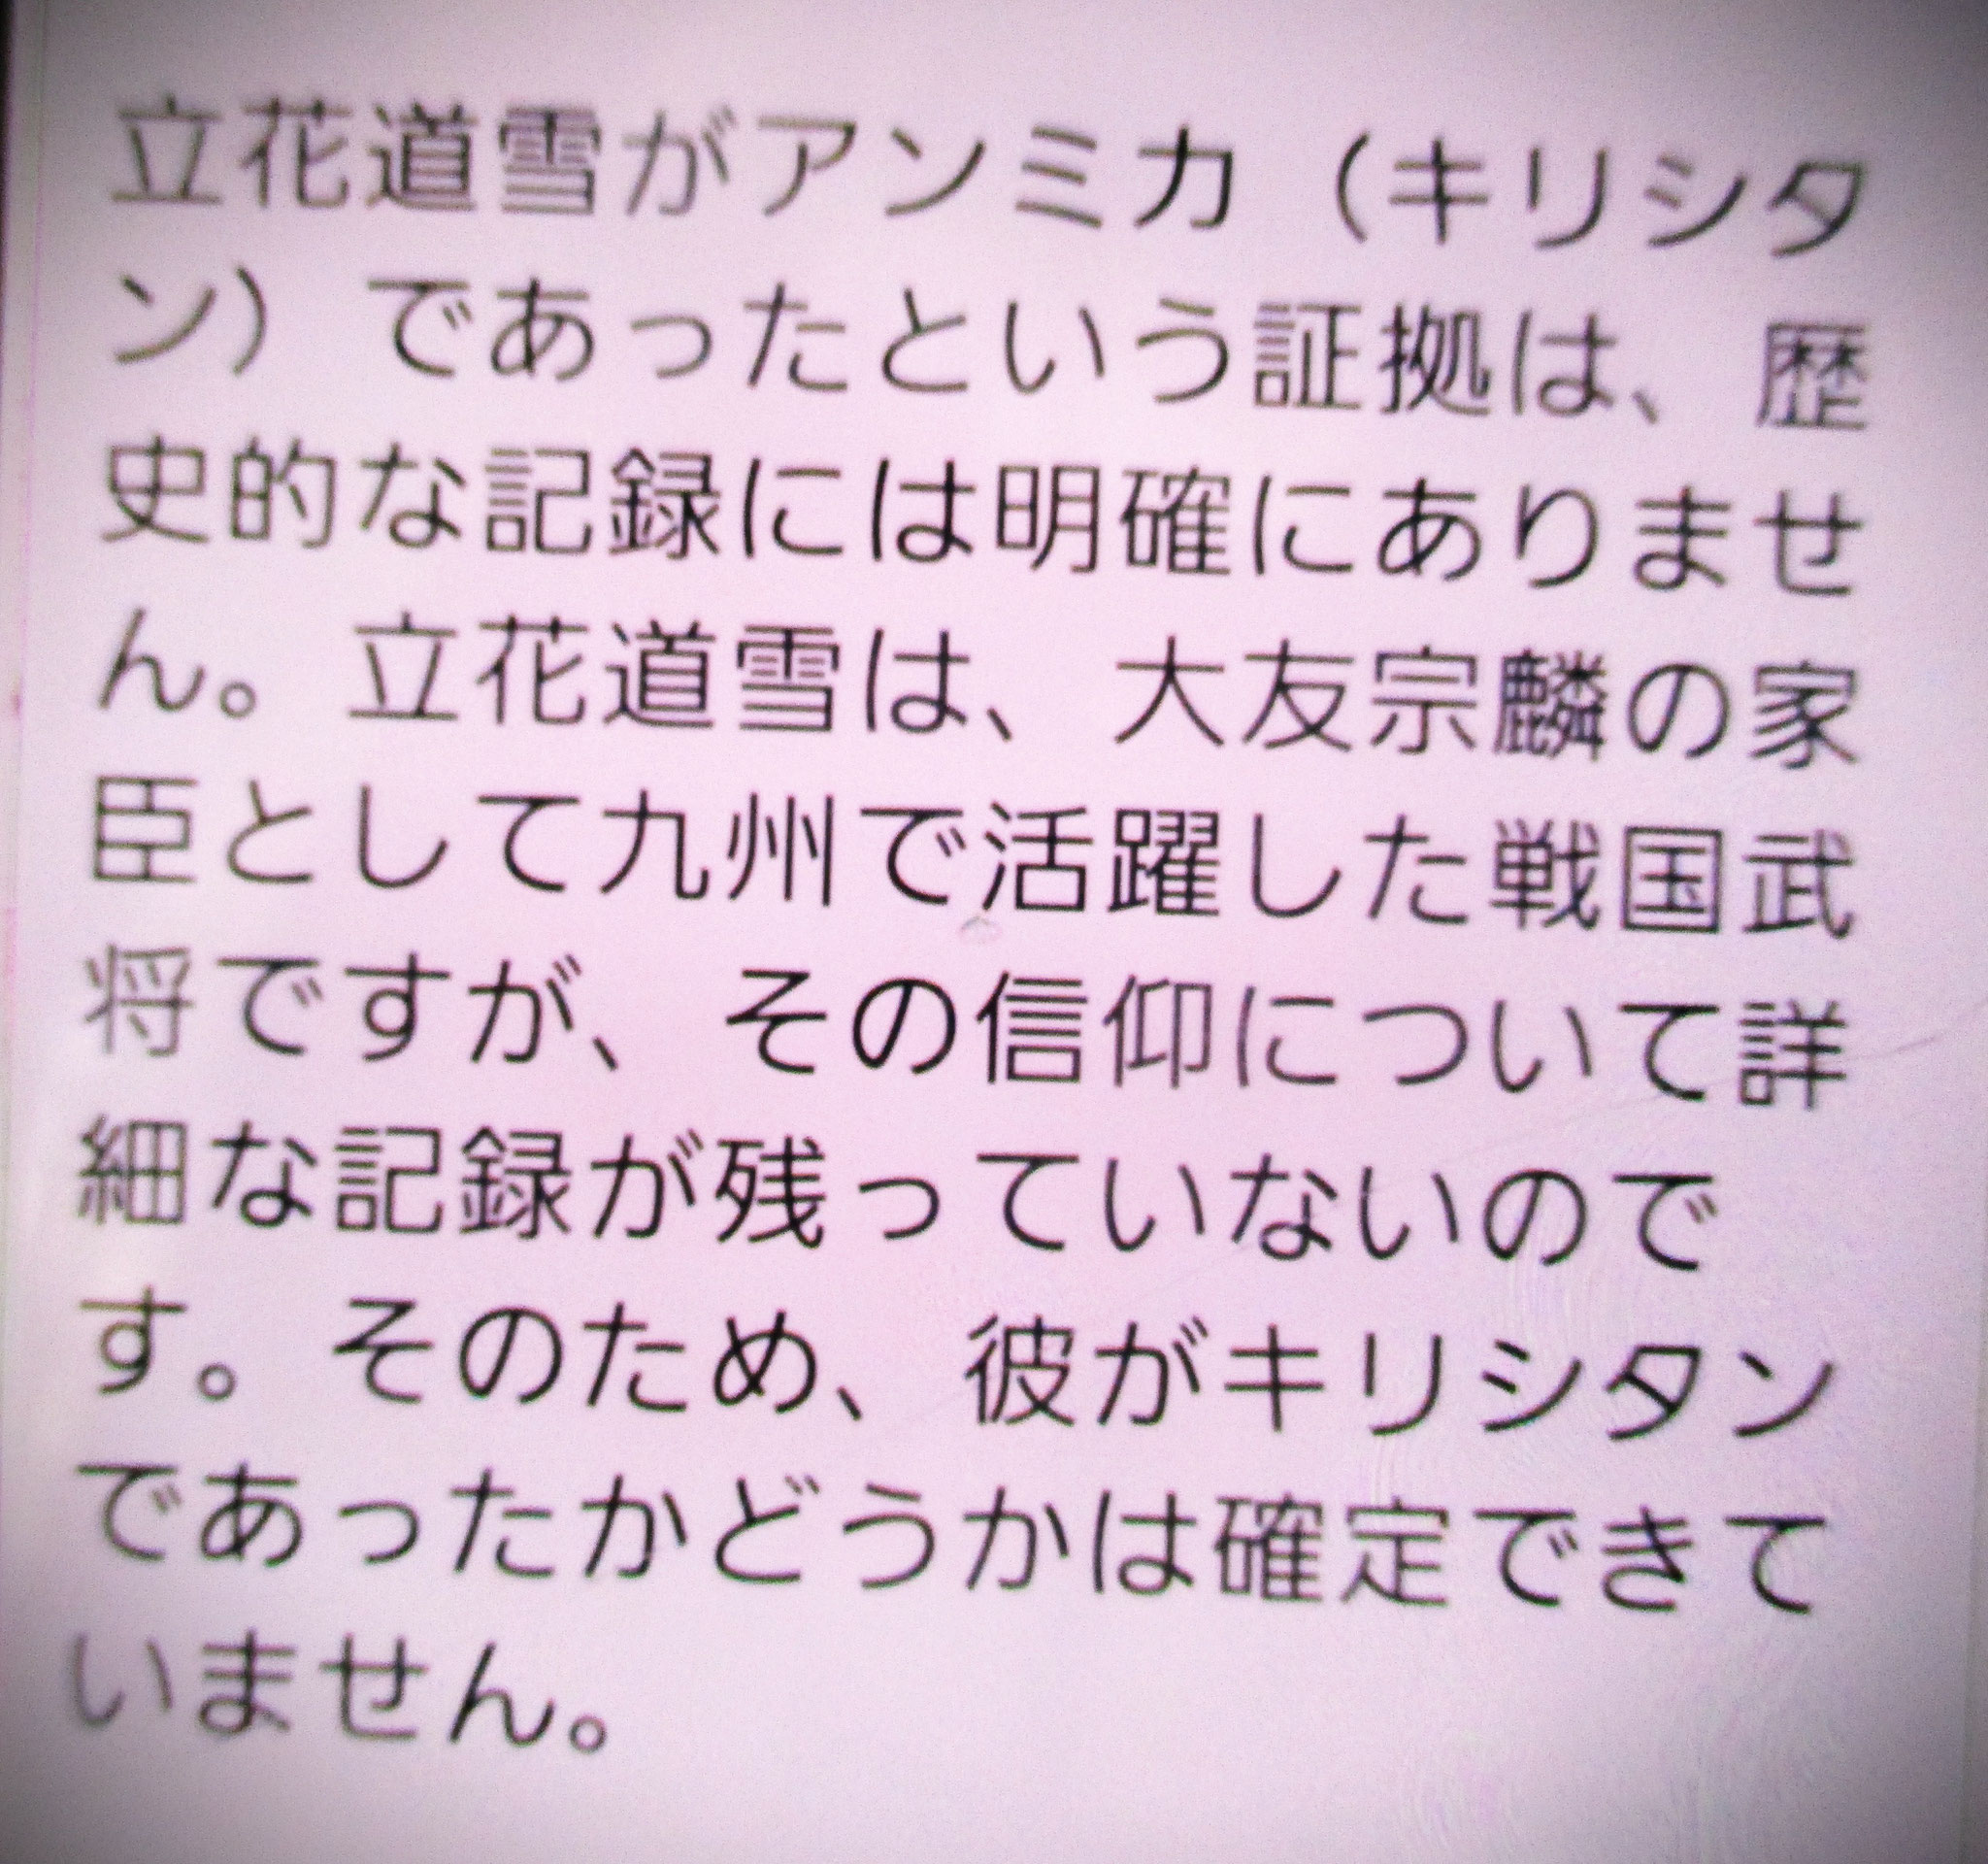 立花道雪がアンミカ（キリシタ
ン）であったという証拠は、歴
史的な記録には明確にありませ
ん。立花道雪は、大友宗麟の家
臣として九州で活躍した戦国武
将ですが、その信仰について詳
細な記録が残っていないので
す。そのため、彼がキリシタン
であったかどうかは確定できて
いません。